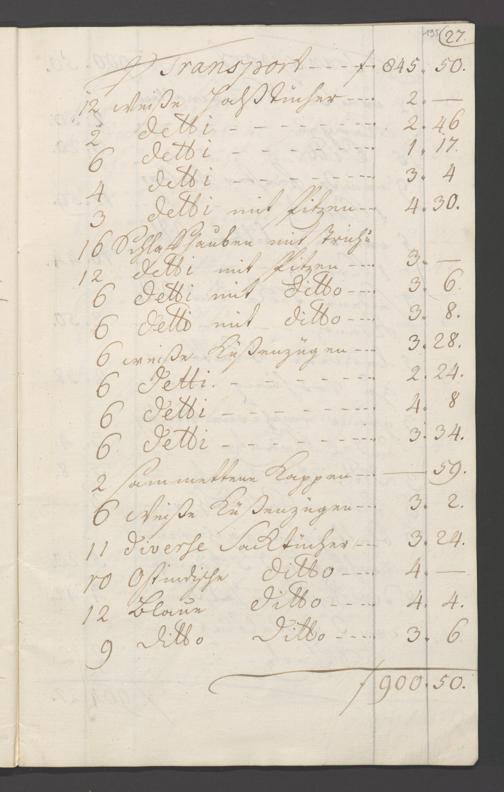 195 27.
Transport - - - f. 845. 50.
12 weiße Halßtücher - - - 2. —
2 detti - - - - - - 2. 46
6 detti - - - - - - 1. 17.
4 detti - - - - - - 3. 4
3 detti mit Spitzen - - - 4. 30.
16 Schlafhauben mit
12 detti mit Spitzen - - - 3. —
6 detti mit Ditto - - - 3. 6.
6 detto mit ditto - - - 3. 8.
6 weiße Küßenzügen - - - 3. 28.
6 Detti. - - - - - - 2. 24.
6 detti - - - - - - 4. 8
6 detti - - - - - - 3. 34.
2 sammettene Kappen - - - — 59.
6 weiße Küßenzügen - - - 3. 2.
11 diverse Sacktücher - - - 3. 24.
10 Ostindische ditto - - - 4. —
12 Blaue ditto - - - - 4. 4.
9 ditto Ditto - - - - 3. 6
f 900. 50.